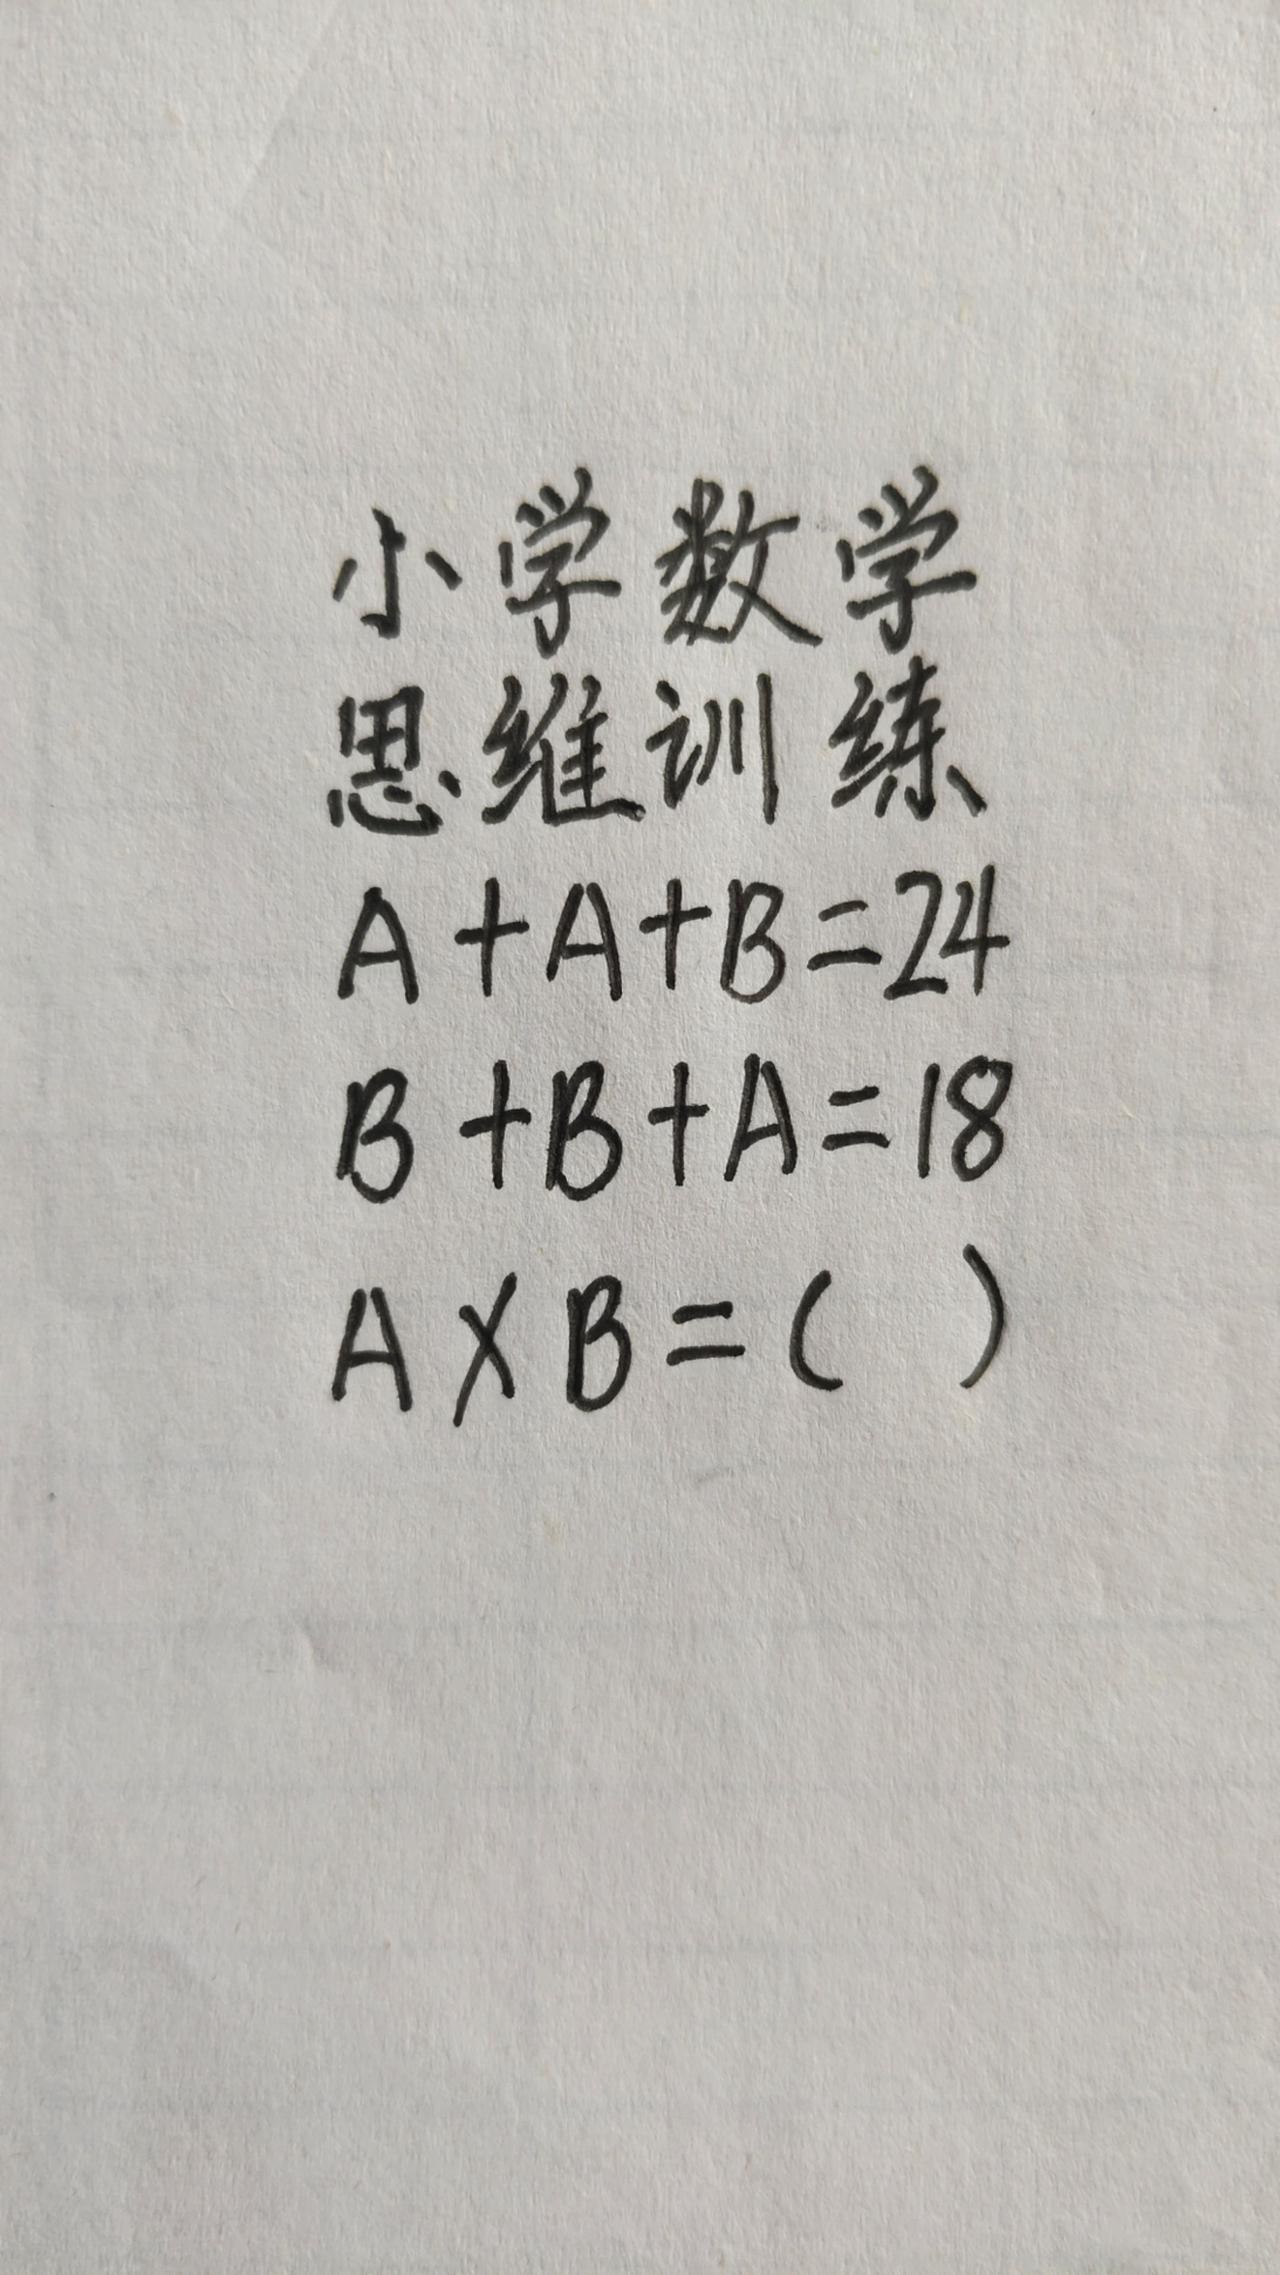 小学数学
思维训练
A+A+B=24
B+B+A=18
A×B=( )